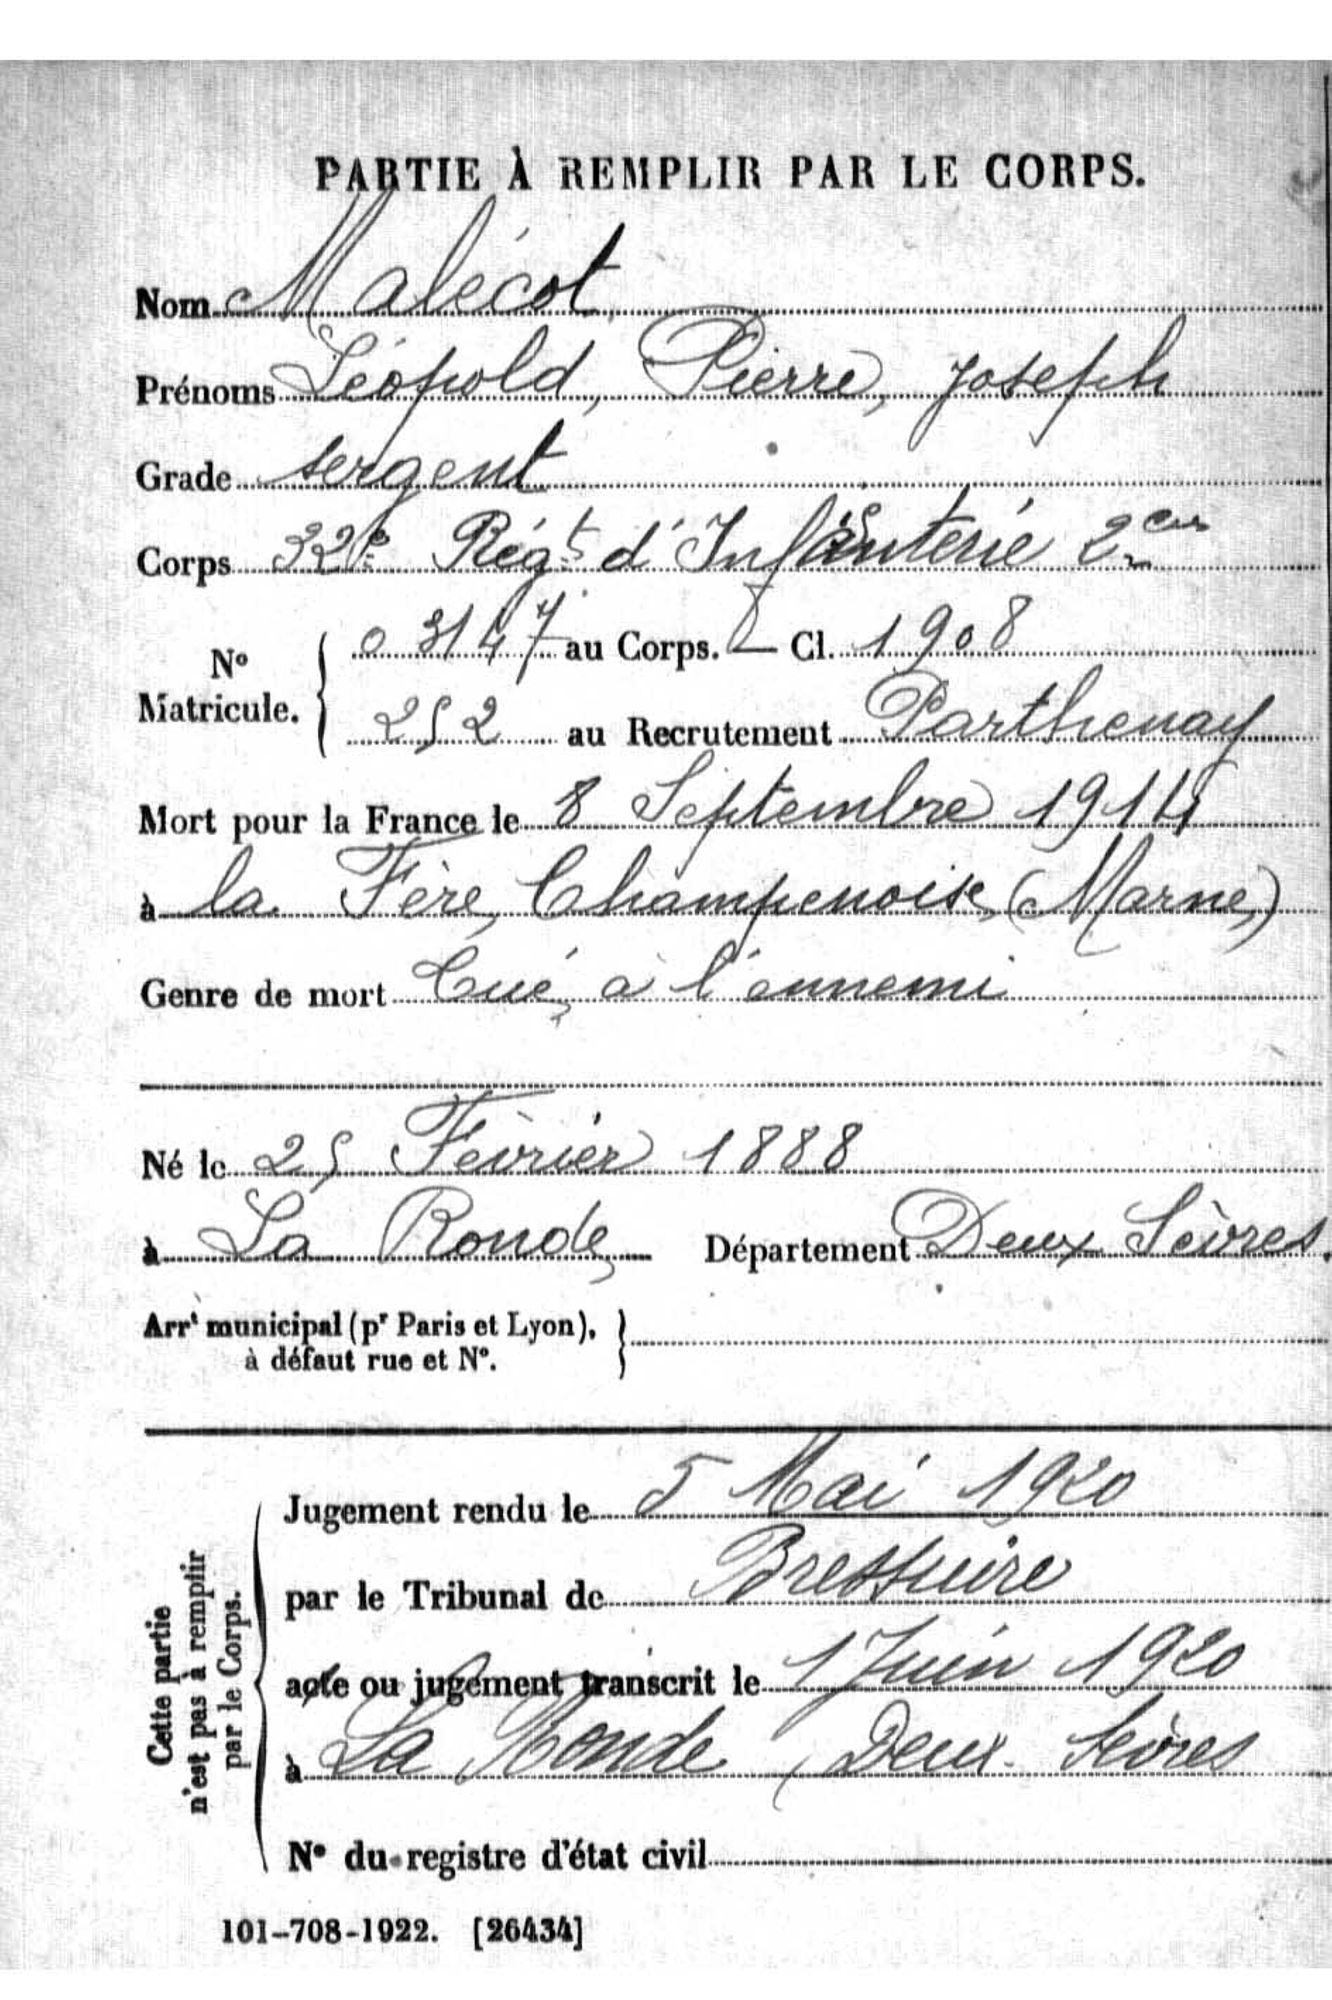 PARTIE À REMPLIR PAR LE CORPS.
Nom Malécot
Prénoms Léopold, Pierre, Joseph
Grade sergent
Corps 32e Régt d'Infanterie
N° Matricule. { 03147 au Corps. — Cl. 1908
252 au Recrutement Parthenay
Mort pour la France le 8 Septembre 1914
à la Fère Champenoise (Marne)
Genre de mort Tué à l'ennemi
Né le 25 Février 1888
à La Ronde Département Deux Sèvres.
Arrt municipal (pr Paris et Lyon), }
à défaut rue et N°.
Cette partie
n'est pas à remplir
par le Corps.
Jugement rendu le 5 Mai 1920
par le Tribunal de Bressuire
acte ou jugement transcrit le 1 Juin 1920
à La Ronde, Deux-Sèvres
N° du registre d'état civil
101-708-1922. [26434]